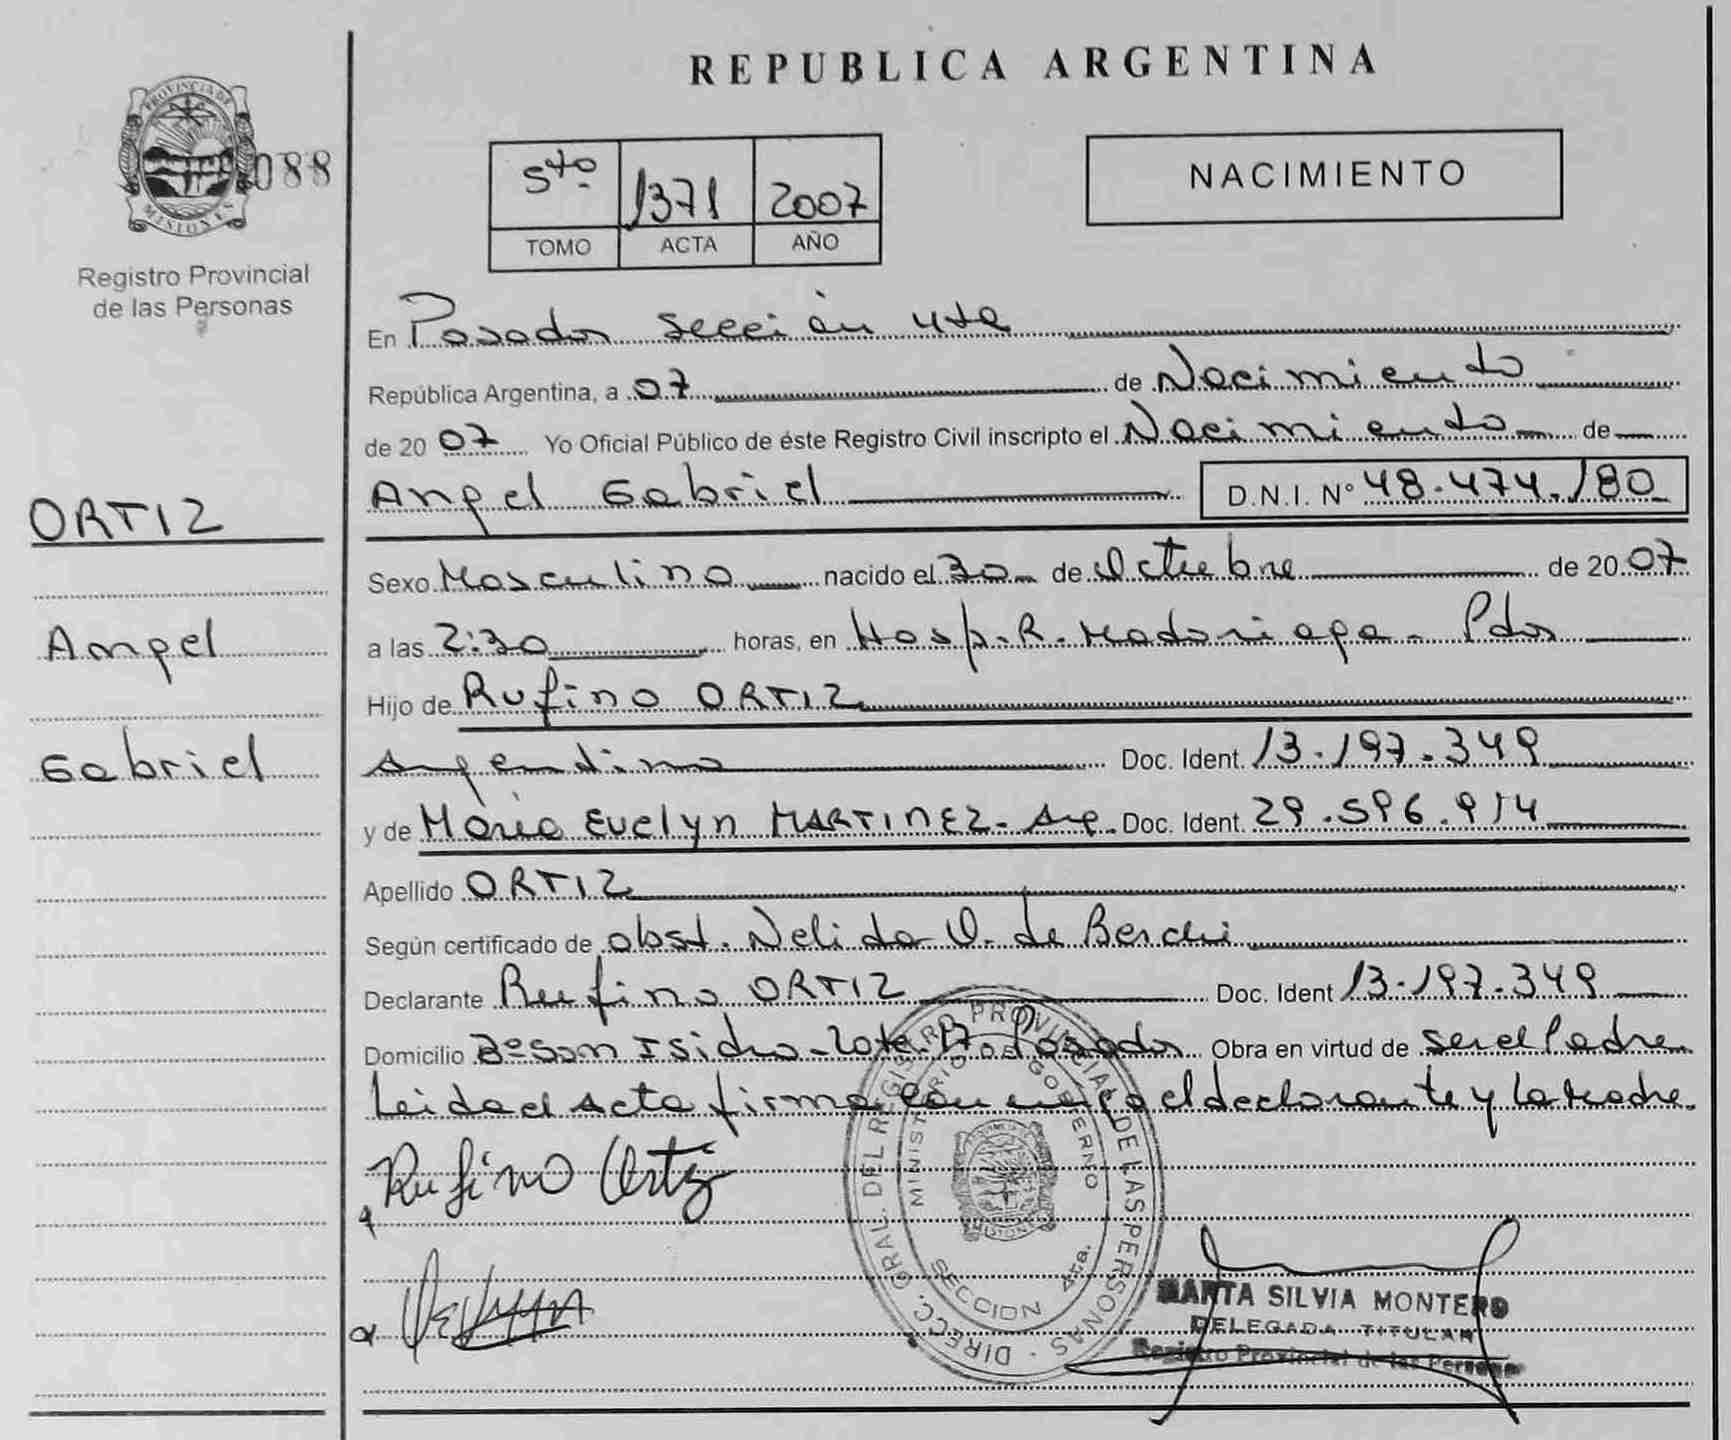 REPUBLICA ARGENTINA
PROVINCIA DE
MISIONES
088
Registro Provincial
de las Personas
5to 1371 2007
TOMO ACTA AÑO
NACIMIENTO
En Posadas sección 4ta
República Argentina, a 07 de Nacimiento
de 2007 Yo Oficial Público de éste Registro Civil inscripto el Nacimiento de
Angel Gabriel D.N.I. Nº 48.474.180
ORTIZ
Sexo Masculino nacido el 30 de Octubre de 2007
Angel
a las 2:30 horas, en Hosp. R. Madariaga - Pdas
Hijo de Rufino ORTIZ
Gabriel
Argentino Doc. Ident. 13.197.349
y de María Evelyn MARTINEZ - Arg. Doc. Ident. 29.596.914
Apellido ORTIZ
Según certificado de obst. Nelida O. de
Declarante Rufino ORTIZ Doc. Ident 13.197.349
Domicilio Bº San Isidro - Posadas Obra en virtud de ser el Padre
Leida el acta firma conmigo el declarante y la Madre.
Rufino Ortiz
DIRECC. GRAL. DEL REGISTRO PROVINCIAL DE LAS PERSONAS
MINISTERIO DE GOBIERNO
SECCION 4ta.
MARTA SILVIA MONTERO
DELEGADA TITULAR
Registro Provincial de las Personas